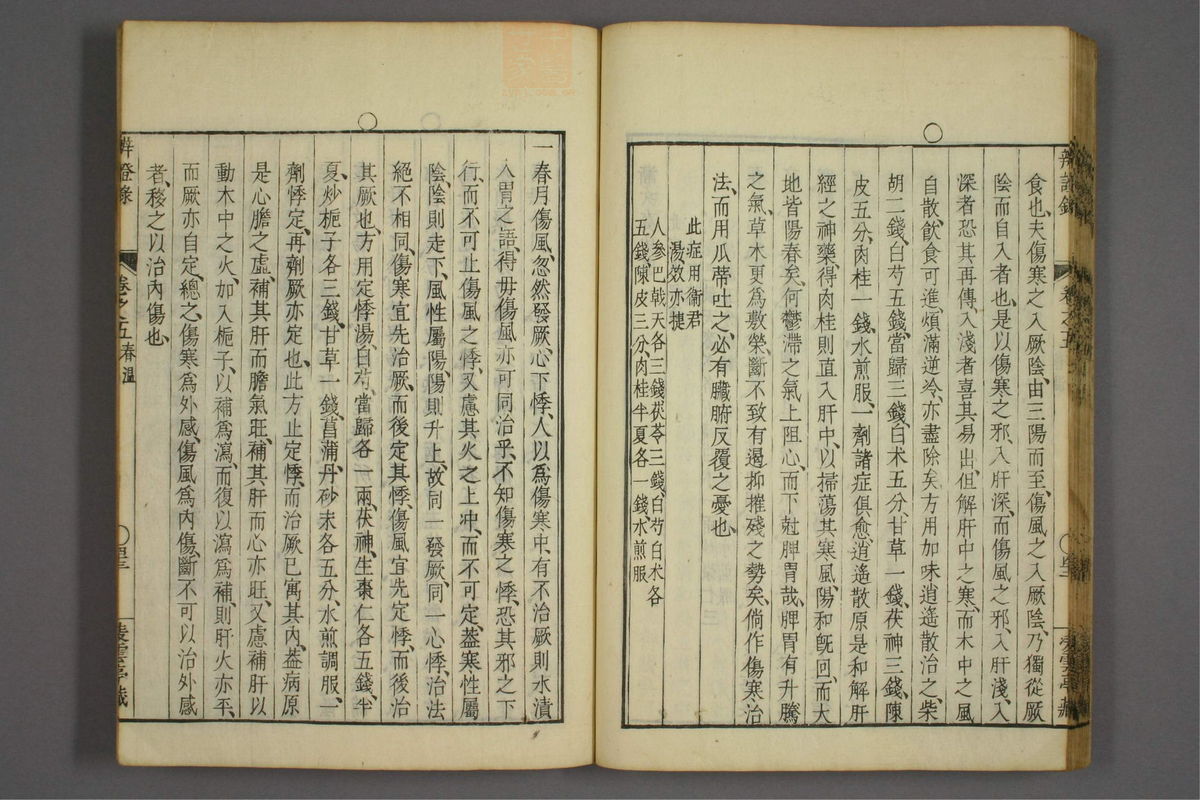 食也、夫傷寒之入厥陰、由三陽而至、傷風之入厥陰、乃獨從厥
陰而自入者也、是以傷寒之邪、入肝深、而傷風之邪、入肝淺、入
深者恐其再傳、入淺者喜其易出、但解肝中之寒、而木中之風
自散、飲食可進、煩滿逆冷、亦盡除矣、方用加味逍遙散治之、柴
胡二錢、白芍五錢、當歸三錢、白术五分、甘草一錢、茯神三錢、陳
皮五分、肉桂一錢、水煎服、一劑諸症俱愈、逍遙散原是和解肝
經之神藥、得肉桂則直入肝中、以掃蕩其寒風、陽和旣回、而大
地皆陽春矣、何鬱滯之氣上阻心、而下尅脾胃哉、脾胃有升騰
之氣、草木更爲敷榮、斷不致有遏抑摧殘之勢矣、倘作傷寒治
法、而用瓜蒂吐之、必有臟腑反覆之憂也、
此症用衛君
湯效亦捷
人參巴戟天各三錢茯苓三錢、白芍白术各
五錢、陳皮三分、肉桂半夏各一錢水煎服
辨證錄
卷之五
一春月傷風、忽然發厥、心下悸、人以爲傷寒中、有不治厥則水漬
入胃之語、得毋傷風亦可同治乎、不知傷寒之悸、恐其邪之下
行、而不可止、傷風之悸、又慮其火之上冲、而不可定、葢寒性屬
陰、陰則走下、風性屬陽、陽則升上、故同一發厥、同一心悸、治法
絕不相同、傷寒宜先治厥、而後定其悸、傷風宜先定悸、而後治
其厥也、方用定悸湯、白芍、當歸各一兩、茯神、生棗仁各五錢、半
夏、炒梔子各三錢、甘草一錢、菖蒲、丹砂末各五分、水煎調服、一
劑悸定、再劑厥亦定也、此方止定悸、而治厥已寓其內、葢病原
是心膽之虛、補其肝而膽氣旺、補其肝而心亦旺、又慮補肝以
動木中之火、加入梔子、以補爲瀉、而復以瀉爲補、則肝火亦平、
而厥亦自定、總之、傷寒爲外感、傷風爲內傷、斷不可以治外感
者、移之以治內傷也、
辨證錄
卷之五春溫